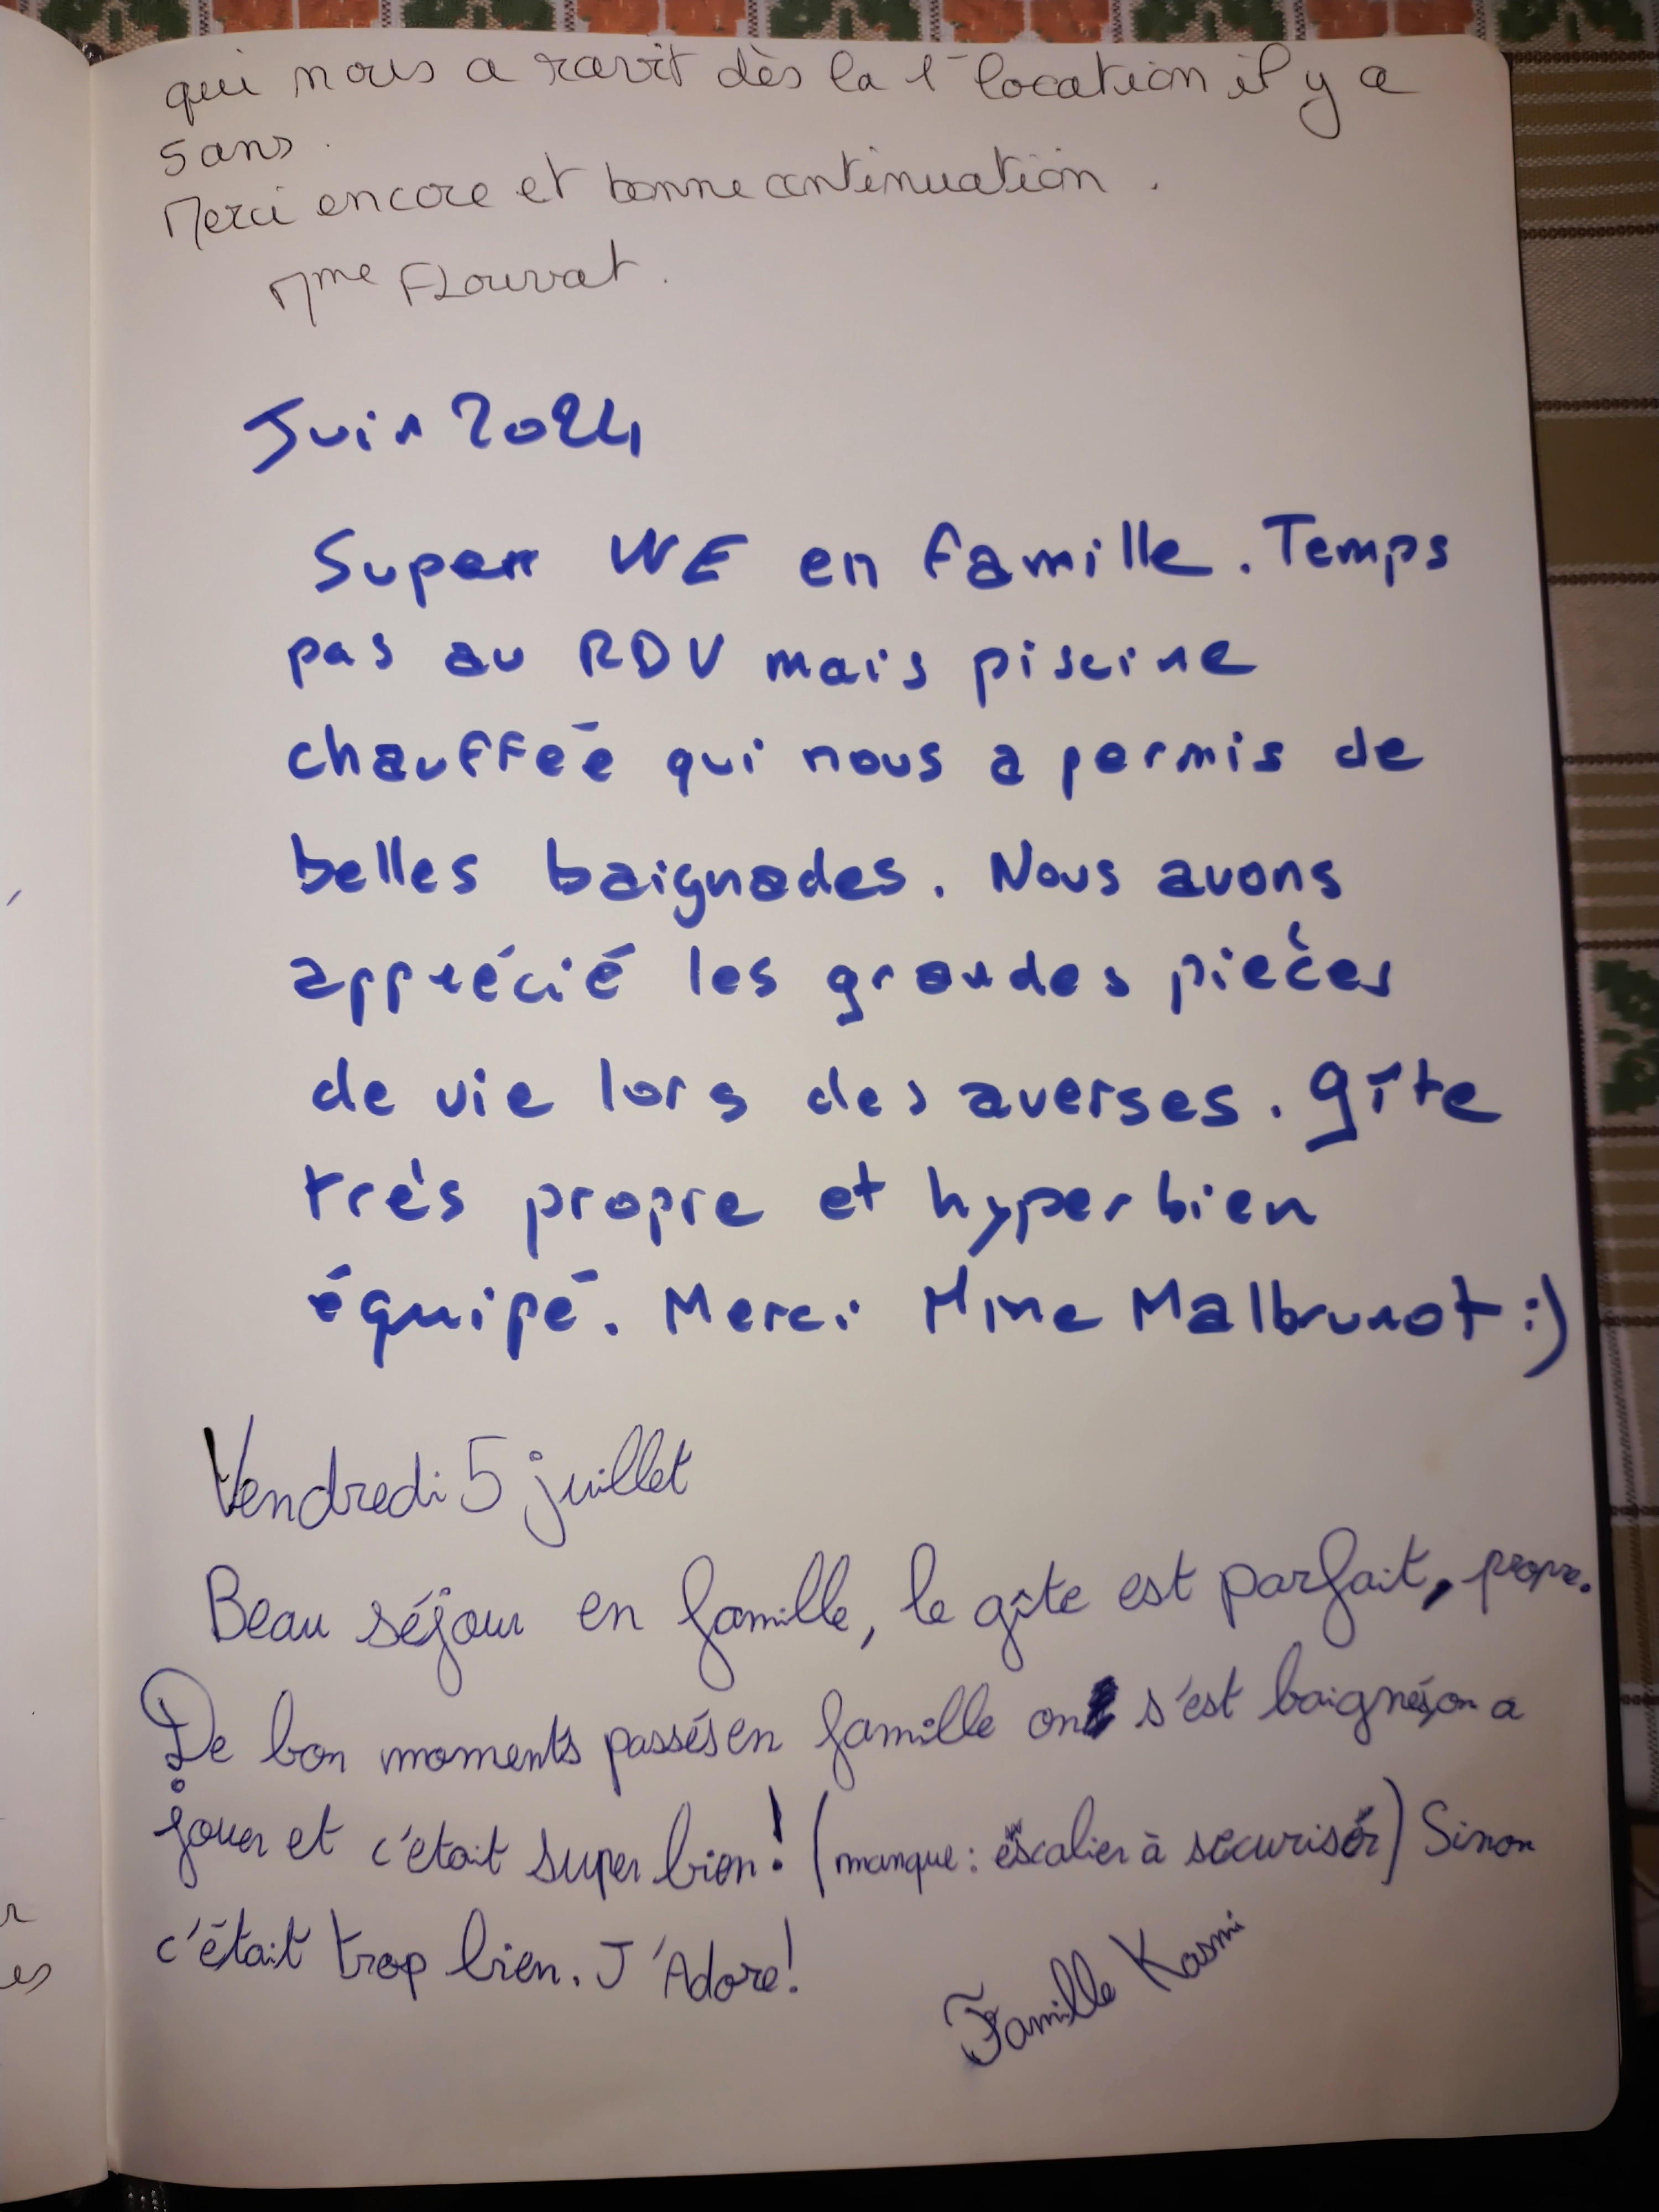 qui nous a ravit dès la 1 location il y a
5 ans.
Merci encore et bonne continuation.
Mme Flouvat.
Juin 2024
Super WE en famille. Temps
pas au RDV mais piscine
chauffée qui nous a permis de
belles baignades. Nous avons
apprécié les grandes pièces
de vie lors des averses. gîte
très propre et hyper bien
équipé. Merci Mme Malbrunot :)
Vendredi 5 juillet
Beau séjour en famille, le gîte est parfait, propre.
De bon moments passés en famille on s'est baignés, on a
jouer et c'était super bien! (manque: escalier à sécuriser) Sinon
c'était trop bien. J'Adore!
Famille Kasmi
r
es